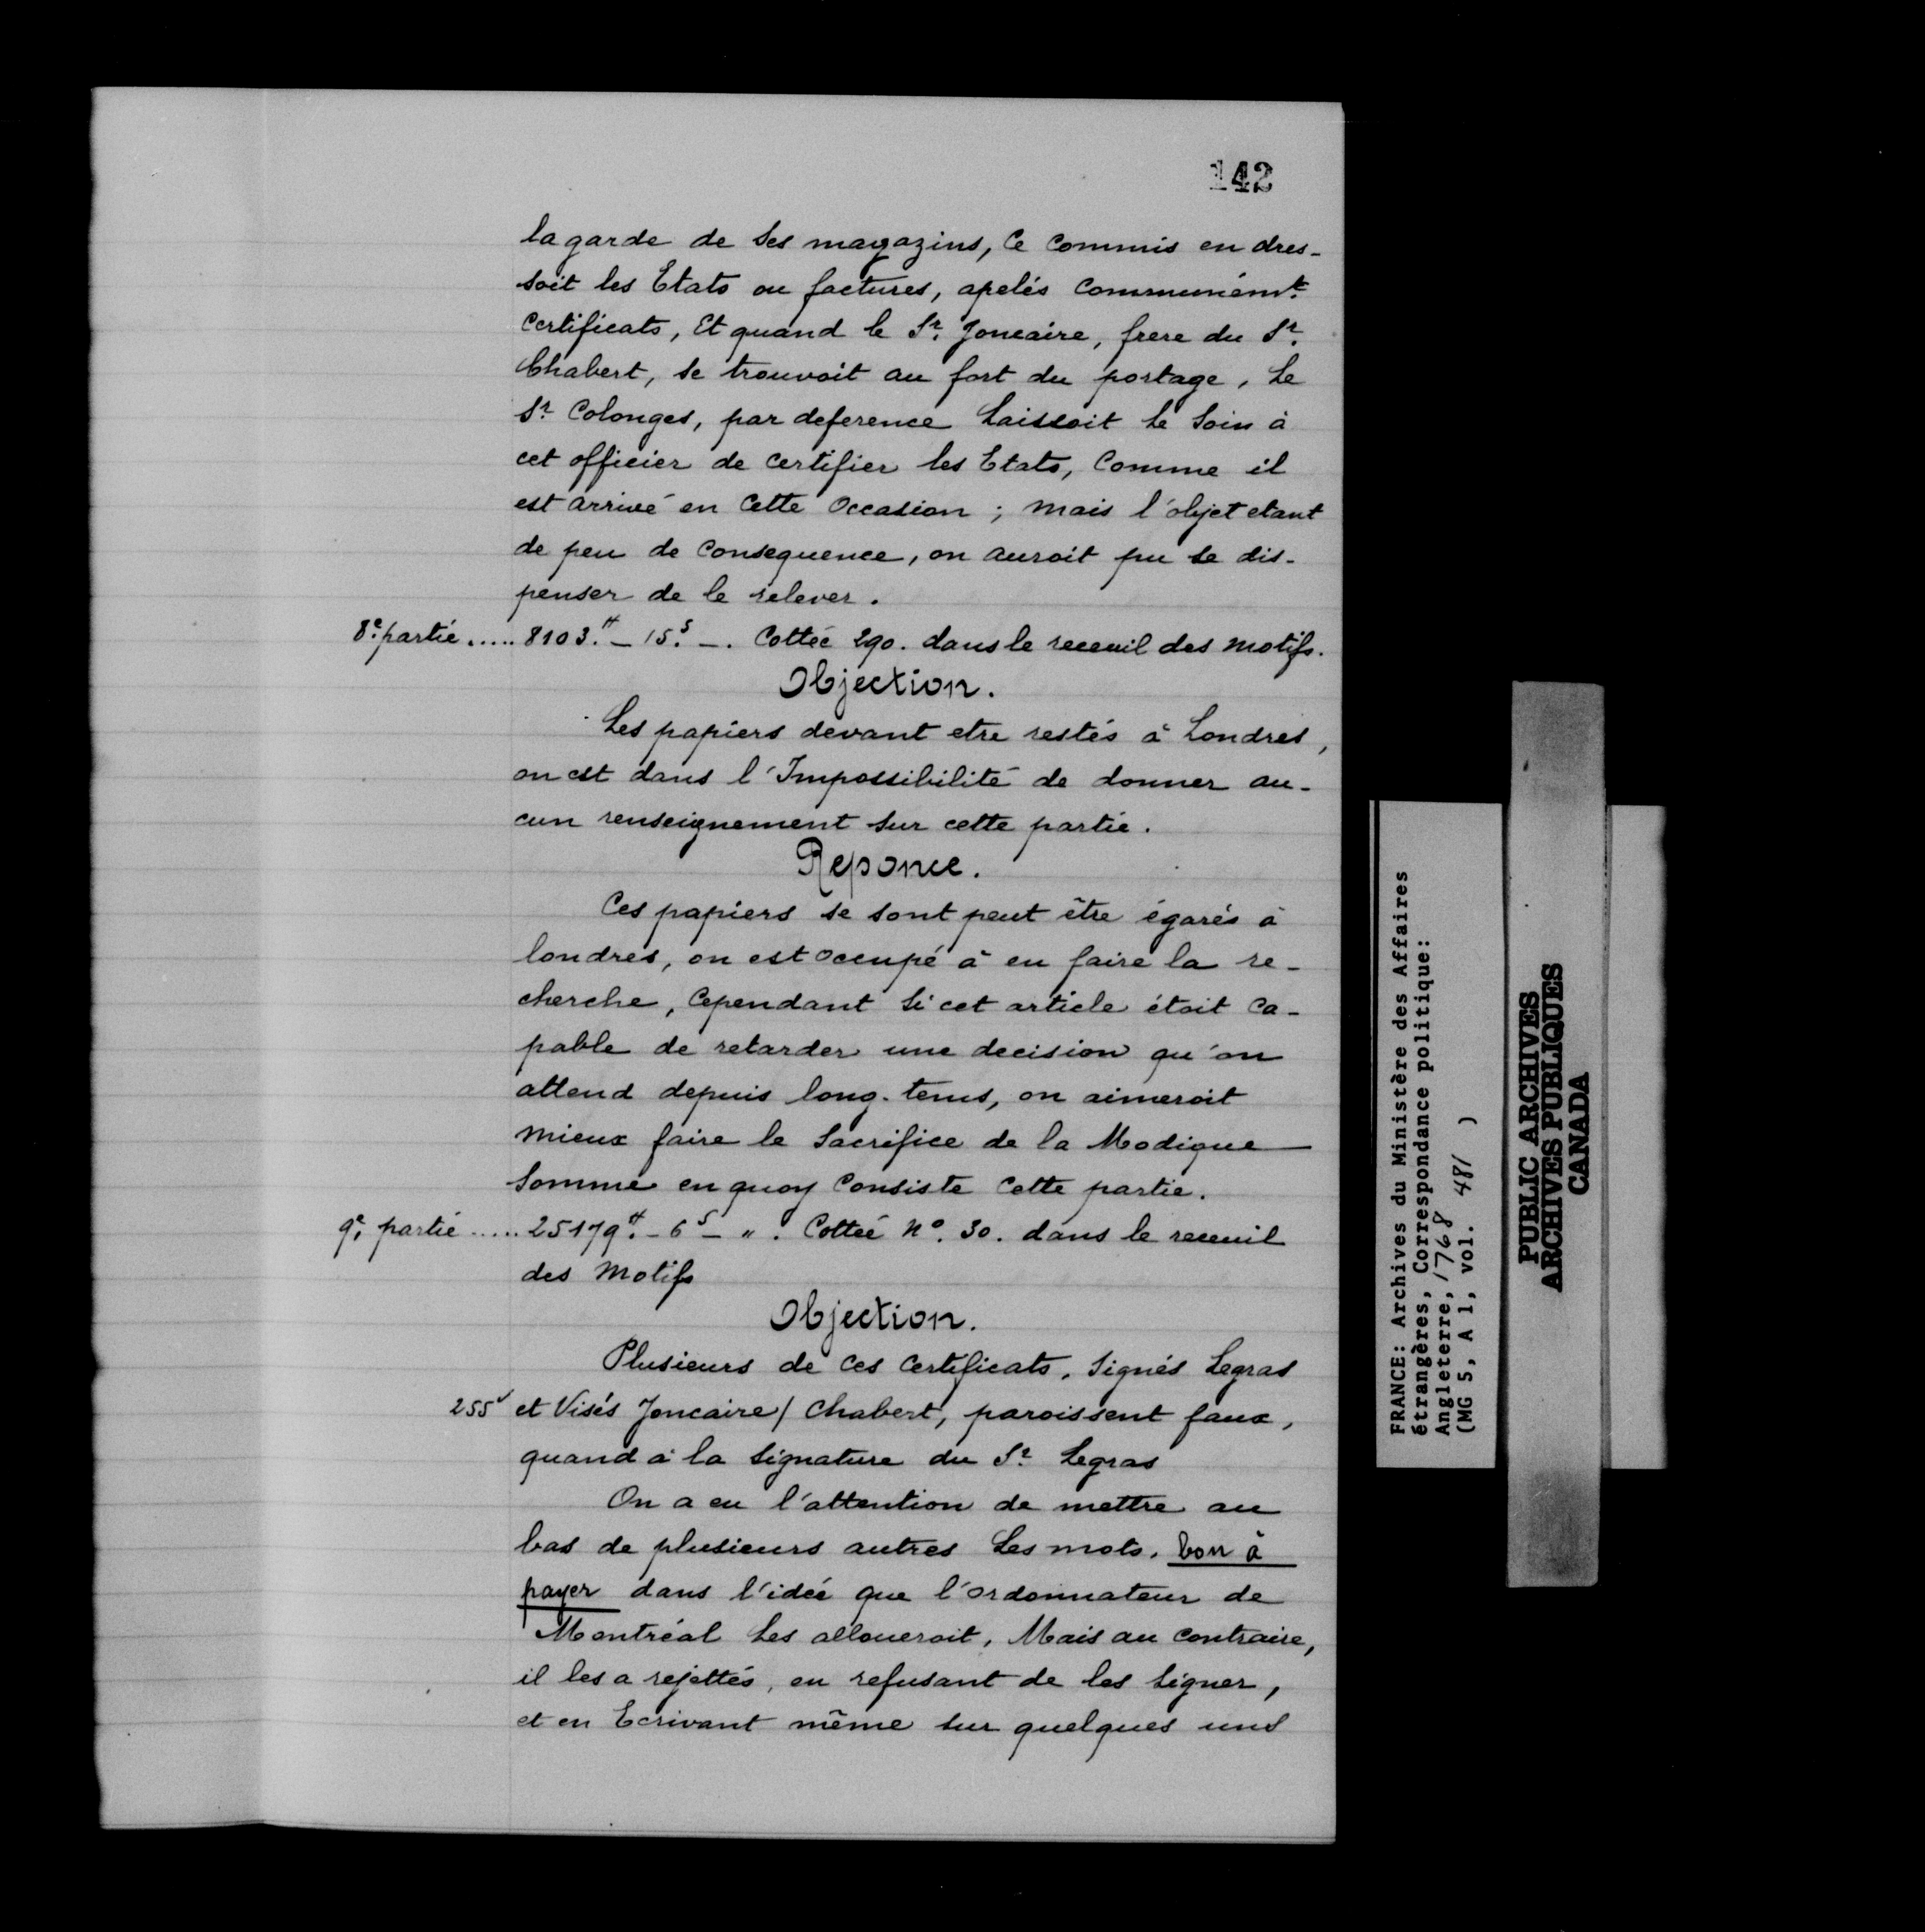 142
la garde de ses magazins, Ce Commis en dres-
soit les Etats ou factures, apelés Communémt.
Certificats, Et quand le Sr. Joncaire, frere du Sr.
Chabert, se trouvoit au fort du portage, Le
Sr. Colonges, par deference Laissoit Le Soin à
cet officier de Certifier les Etats, Comme il
est arrivé en Cette Occasion ; Mais l'objet etant
de peu de Consequence, on auroit pu se dis-
penser de le relever.
8e. partie ..... 8103.# - 15.s - . Cottée 290. dans le receuil des Motifs.
Objection.
Les papiers devant etre restés à Londres,
on est dans l'Impossibilité de donner au-
cun renseignement sur cette partie.
Reponce.
Ces papiers se sont peut être égarés à
londres, on est occupé à en faire la re-
cherche, Cependant Si cet article étoit Ca-
pable de retarder une decision qu'on
attend depuis long-tems, on aimeroit
mieux faire le Sacrifice de la Modique
Somme en quoy Consiste Cette partie.
9e. partie ..... 25179.# - 6s - ". Cottée No. 30. dans le receuil
des Motifs
Objection.
Plusieurs de Ces Certificats, Signés Legras
255v et Visés Joncaire / Chabert, paroissent faux,
quand à la Signature du Sr. Legras
On a eu l'attention de mettre au
bas de plusieurs autres Les mots, bon à
payer dans l'idée que l'ordonnateur de
Montréal Les alloueroit, Mais au Contraire,
il les a rejettés, en refusant de les Signer,
et en Ecrivant même sur quelques uns
FRANCE: Archives du Ministère des Affaires
étrangères, Correspondance politique:
Angleterre, 1768
(MG 5, A 1, vol. 481 )
PUBLIC ARCHIVES
ARCHIVES PUBLIQUES
CANADA